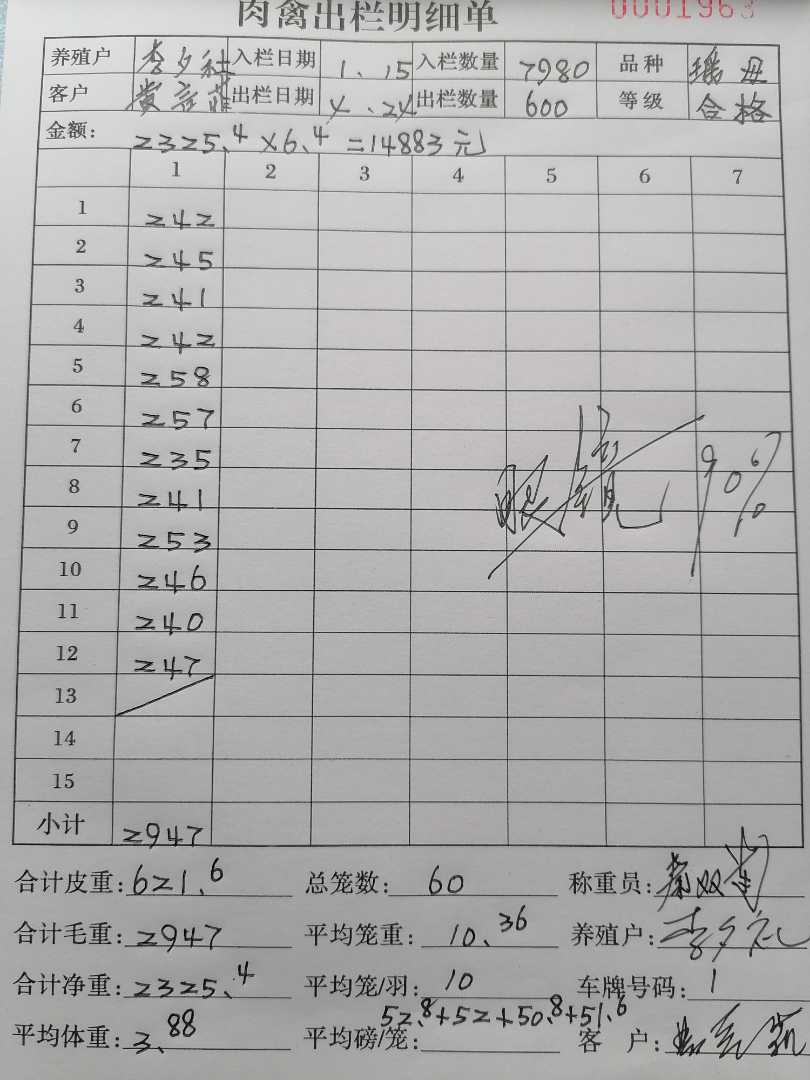 肉禽出栏明细单 0001963
养殖户 李夕社 入栏日期 1、15 入栏数量 7980 品种 瑶母
客户 黄 出栏日期 4、24 出栏数量 600 等级 合格
金额: 2325.4×6.4=14883元
1 2 3 4 5 6 7
1 242
2 245
3 241
4 242
5 258
6 257
7 235
8 241
9 253
10 246
11 240
12 247
眼镜 90%
13
14
15
小计 2947
合计皮重: 621.6 总笼数: 60 称重员:
合计毛重: 2947 平均笼重: 10.36 养殖户: 李夕社
合计净重: 2325.4 平均笼/羽: 10 车牌号码: 1
平均体重: 3.88 平均磅/笼: 52.8+52+50.8+51.6 客 户: